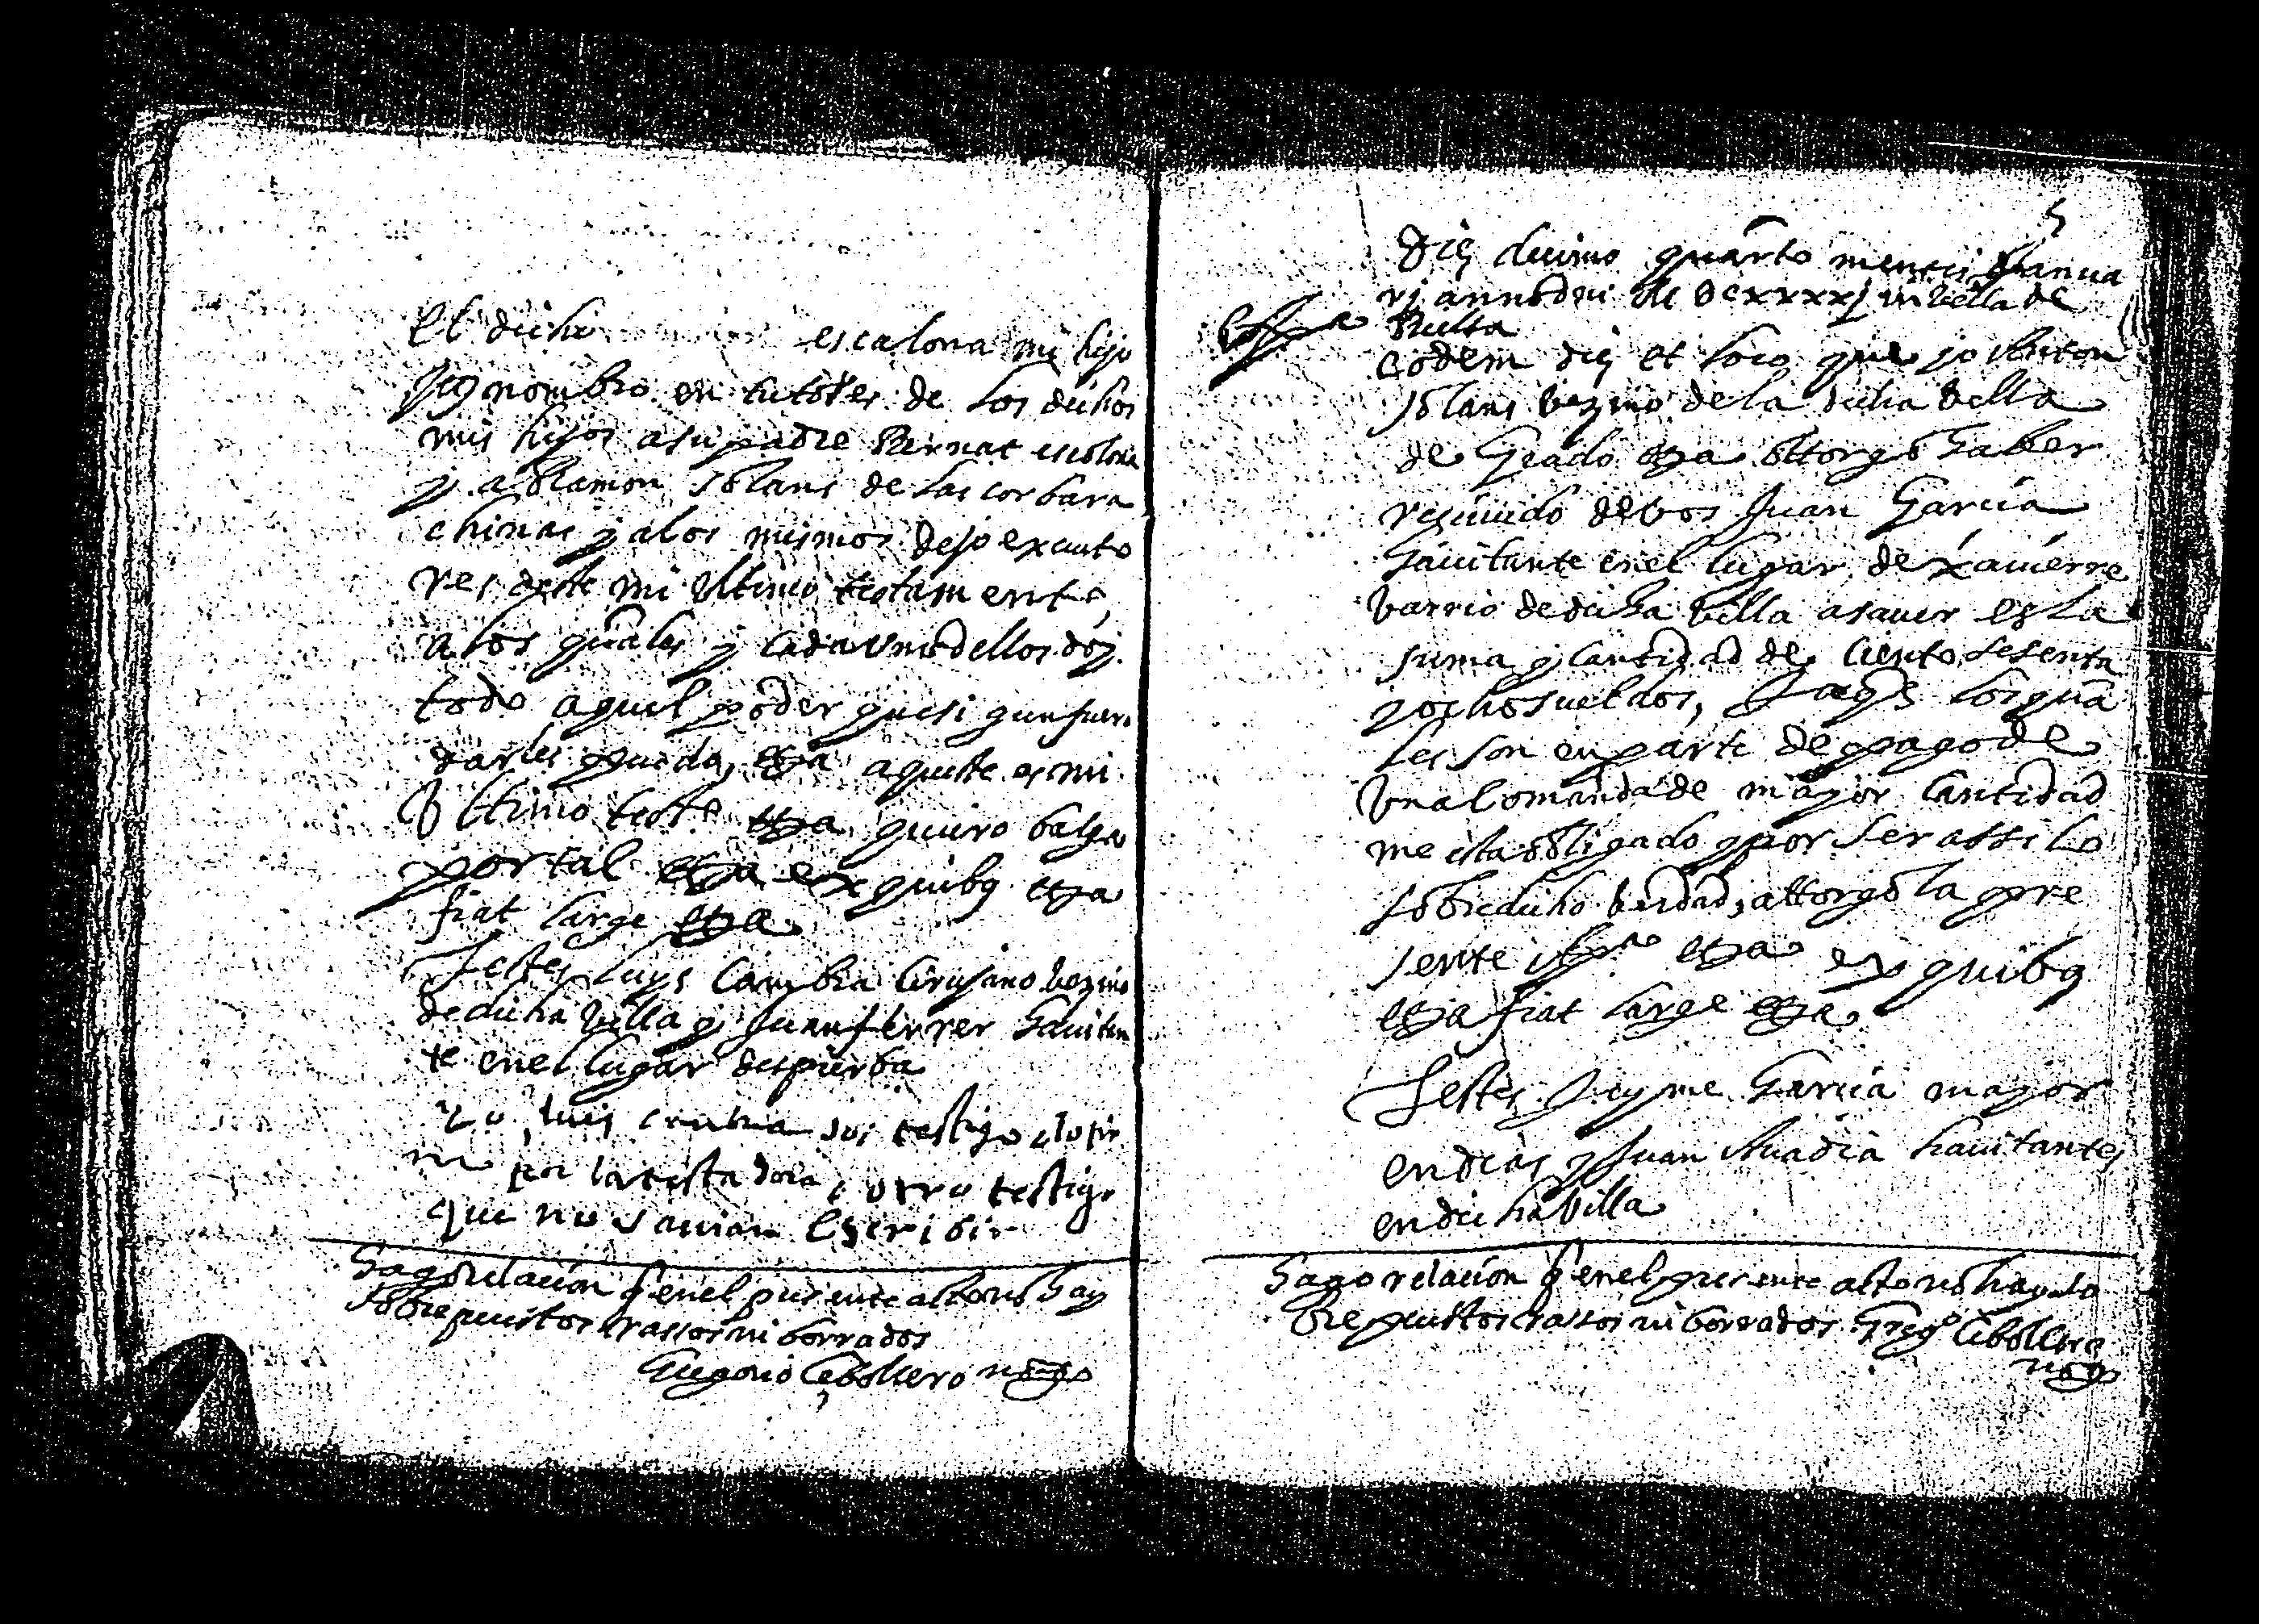 el dicho escalona mi hijo
Yo nombro en tutores de los dichos
mis hijos a su padre Bernat escalona
y a Ramon Solans de las corbara
chinas y a los mismos dejo executo
res deste mi ultimo testamento,
a los quales y cada uno dellos doy
todo aquel poder que si gun fuero
darles puedo, etza aqueste es mi
Ultimo testo etza quiero balga
por tal etza ex quibg etza
fiat large etza
Testes Luys Cambra Cirujano bezino
de dicha billa y Juan ferrer havitan
te en el lugar despierba
Yo luis cambra soi testigo e lo fir
mo por la testadora e otro testigo
que no savian escribir
Hago relacion q en el presente acto no hay
sobrepuestos rassos ni borrados
Gregorio Cebollero notº
5
Die decimo quarto mensis Janua
rj anno dni M DCxxxxj in billa de
Bielsa
eodem die et loco que jo Anton
Solans bezino de la dicha billa
de Grado etza ottorgo haber
recivido de vos Juan Garcia
havitante en el lugar de xavierre
barrio de dicha billa a saver es la
suma y cantidad de ciento sesenta
y ocho sueldos, Jaqs los qua
les son en parte de pago de
Una Comanda de mayor Cantidad
me esta obligado y por ser assi lo
sobredicho berdad, attorgo la pre
sente etza ex quibg
etza fiat large etza
Testes Jayme Garcia mayor
en dias y Juan Avadia havitantes
en dicha Villa
Hago relacion q en el presente acto no hay so
bre puestos rassos ni borrados Gregº Cebollero
notº